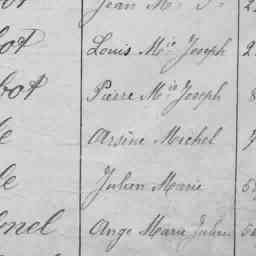 Jean M.
bot Louis M.ie Joseph 2
bot Pierre M.ie Joseph 8
le Arsène Michel
le Julien Marie 5
onel Ange Marie Julien 5